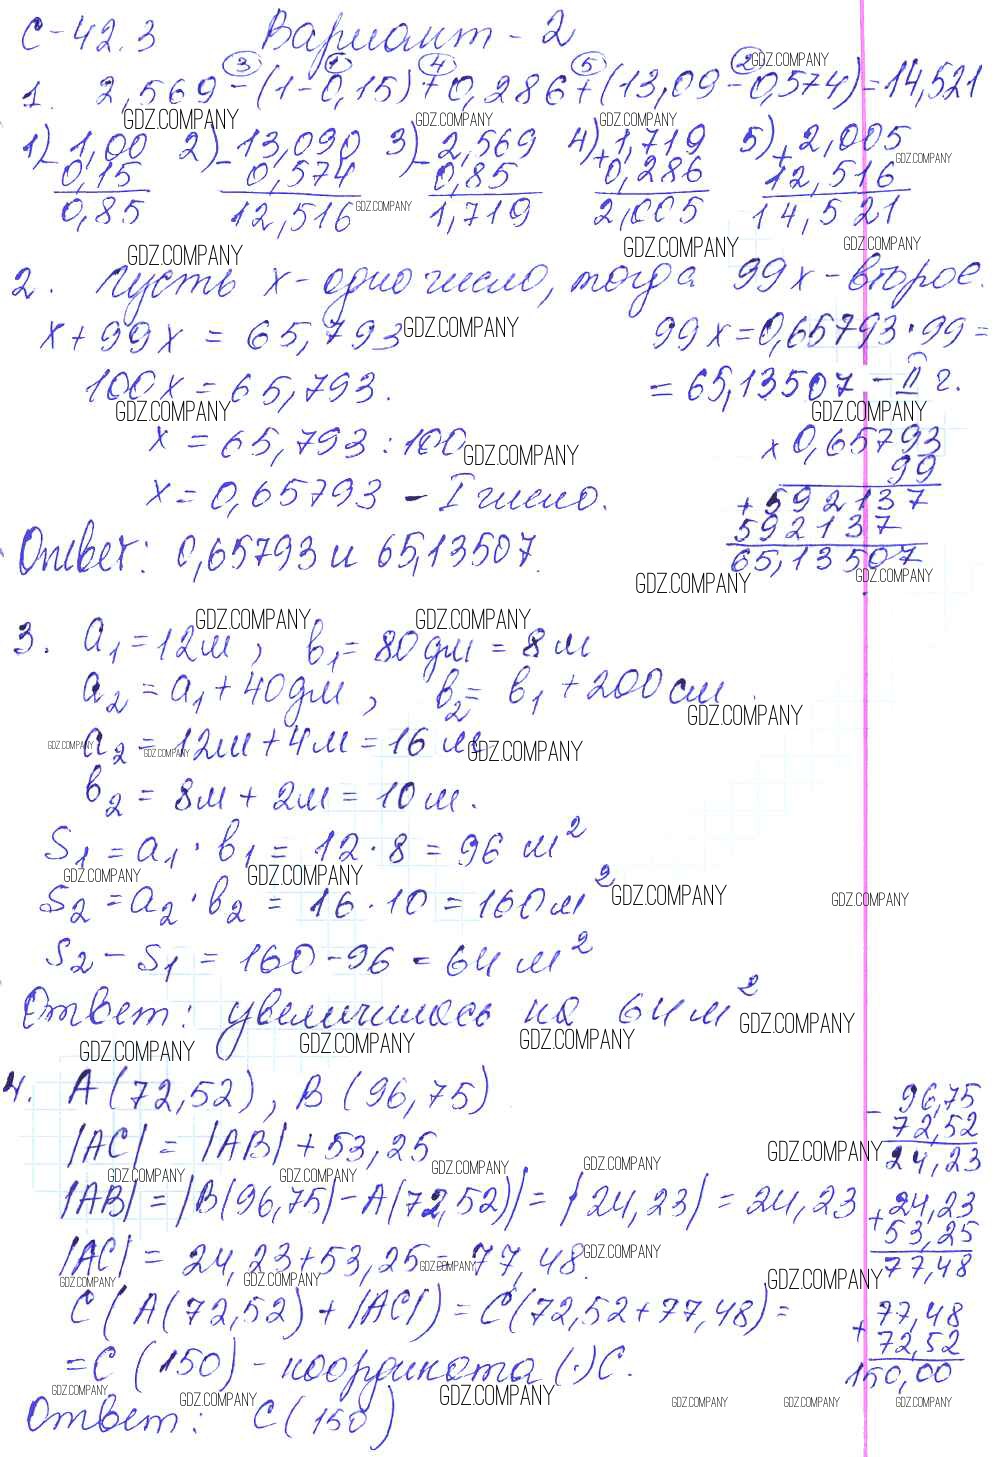 С-42.3 Вариант - 2
3 1 4 5 2
1. 2,569 - (1 - 0,15) + 0,286 + (13,09 - 0,574) = 14,521
1) - 1,00 2) - 13,090 3) - 2,569 4) + 1,719 5) + 2,005
0,15 0,574 0,85 0,286 12,516
0,85 12,516 1,719 2,005 14,521
2. Пусть x - одно число, тогда 99x - второе.
x + 99x = 65,793
100x = 65,793.
x = 65,793 : 100
x = 0,65793 - I число.
99x = 0,65793 · 99 =
= 65,13507 - II г.
x 0,65793
99
+ 592137
592137
65,13507
Ответ: 0,65793 и 65,13507.
3. a1 = 12м, в1 = 80дм = 8м
a2 = a1 + 40дм, в2 = в1 + 200см.
a2 = 12м + 4м = 16м
в2 = 8м + 2м = 10м.
S1 = a1 · в1 = 12 · 8 = 96 м²
S2 = a2 · в2 = 16 · 10 = 160м²
S2 - S1 = 160 - 96 = 64 м²
Ответ: увеличилась на 64м²
4. A(72,52), B(96,75)
|AC| = |AB| + 53,25
|AB| = |B(96,75) - A(72,52)| = |24,23| = 24,23
|AC| = 24,23 + 53,25 = 77,48.
C(A(72,52) + |AC|) = C(72,52 + 77,48) =
= C(150) - координата (·)C.
Ответ: C(150)
- 96,75
72,52
24,23
+ 24,23
53,25
77,48
+ 77,48
72,52
150,00
GDZ.COMPANY